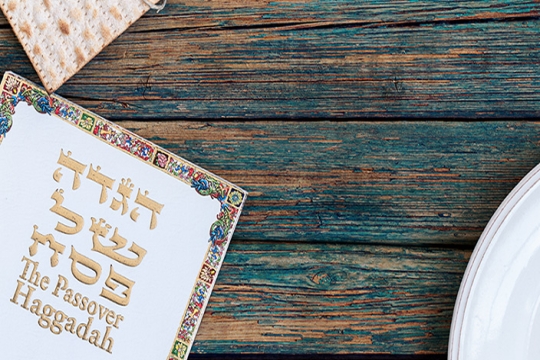 הגדה
של
פסח
The Passover
Haggadah